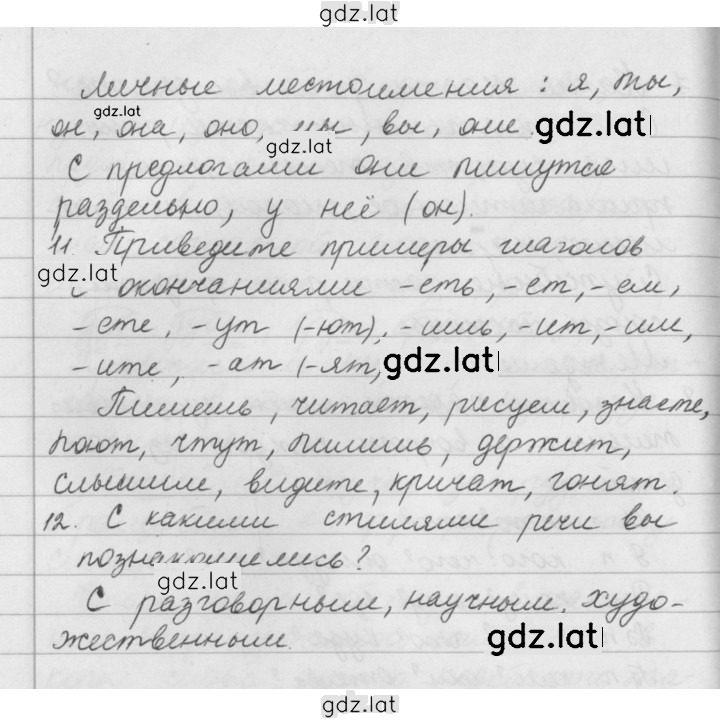 gdz.lat
Личные местоимения: я, ты,
gdz.lat
он, она, оно, мы, вы, они gdz.lat
gdz.lat
С предлогами они пишутся
раздельно, у неё (он).
11. Приведите примеры глаголов
gdz.lat
с окончаниями -еть, -ет, -ем,
-ете, -ут (-ют), -ишь, -ит, -им,
-ите, -ат (-ят, gdz.lat
Пишешь, читает, рисуем, знаете,
поют, чтут, пилишь, держит,
слышим, видите, кричат, гонят.
12. С какими стилями речи вы
познакомились?
gdz.lat
С разговорным, научным, худо-
жественным. gdz.lat
gdz.lat